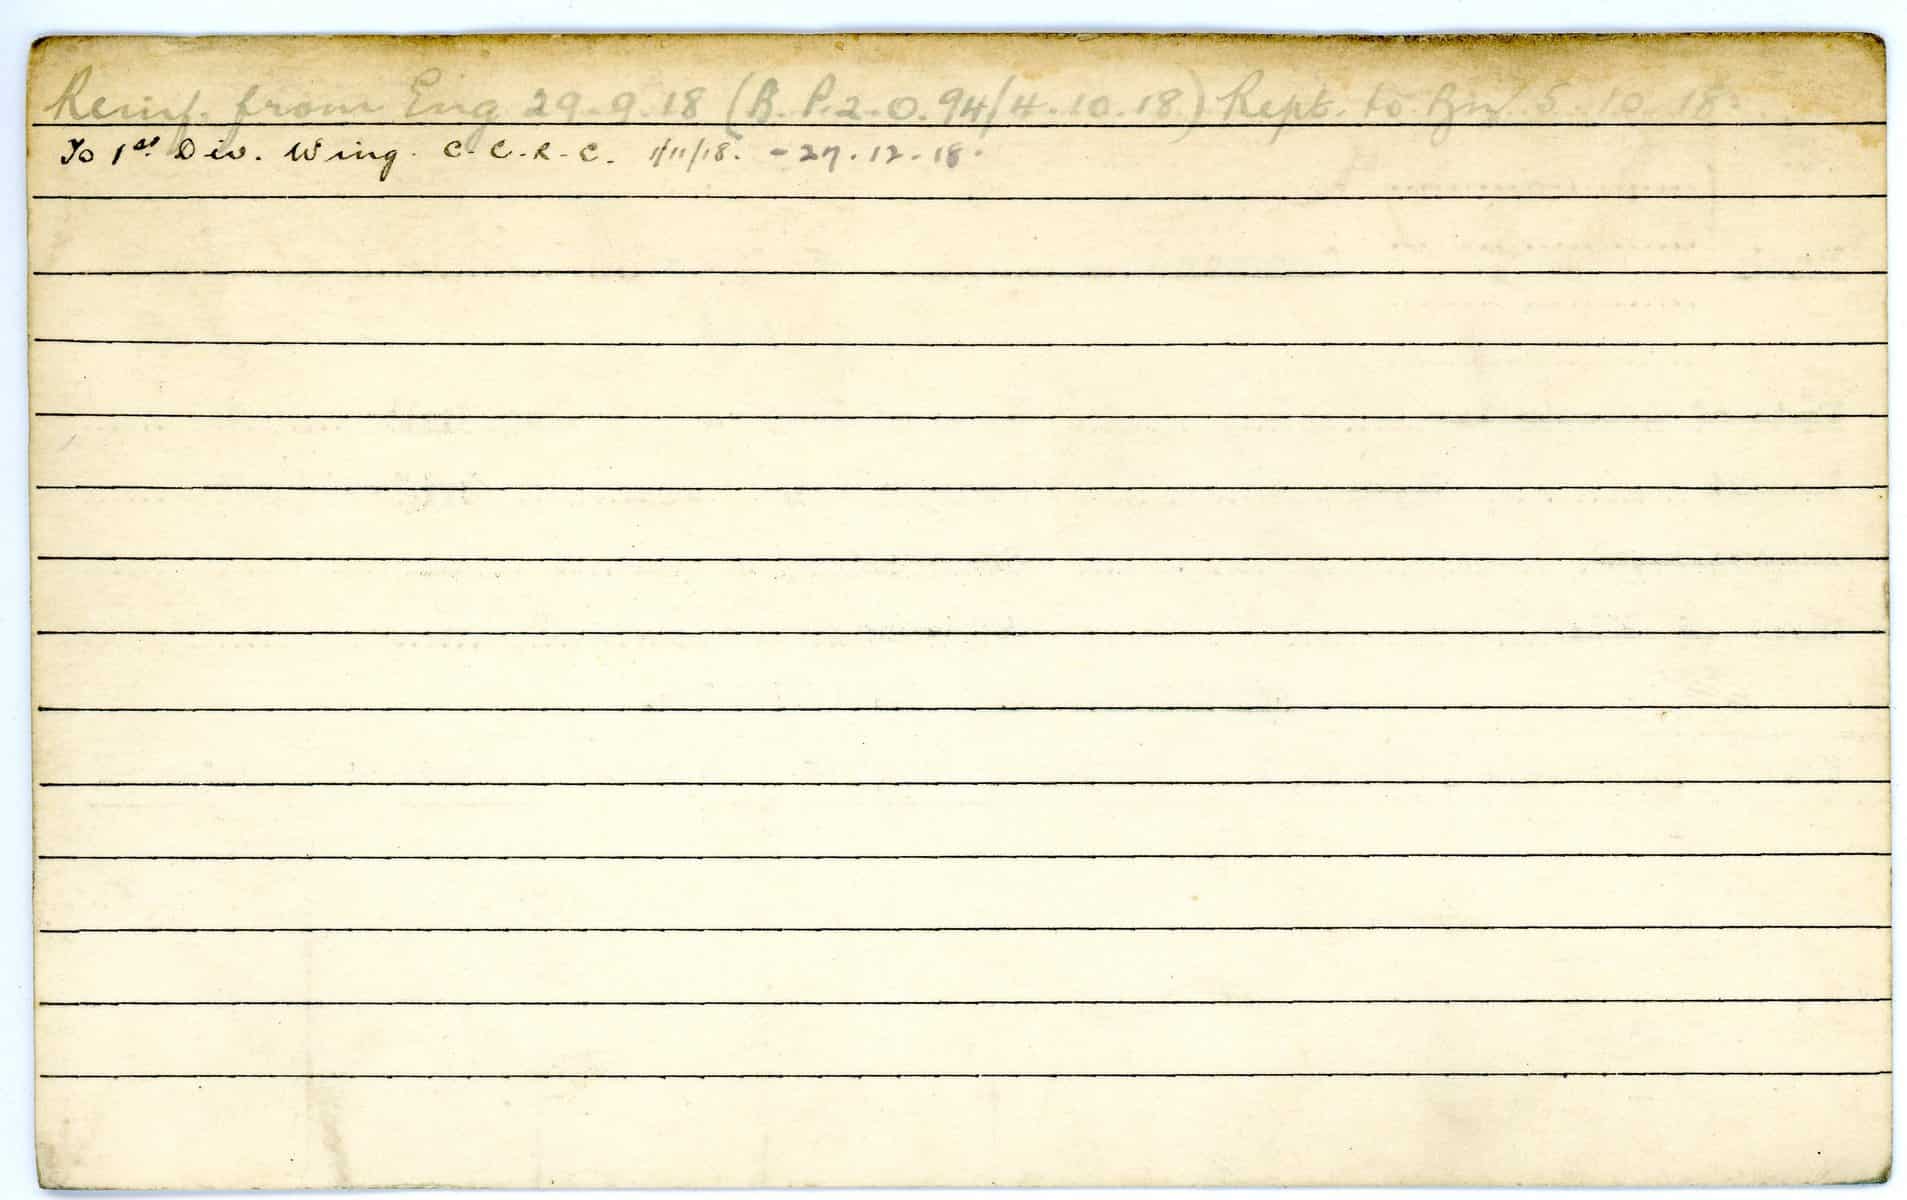 Reinf. from Eng 29.9.18 (B.P.2.O.94/4.10.18.) Rept. to Bn 5.10.18.
To 1st Div. Wing. C.C.R.C. 1/11/18. - 27.12.18.